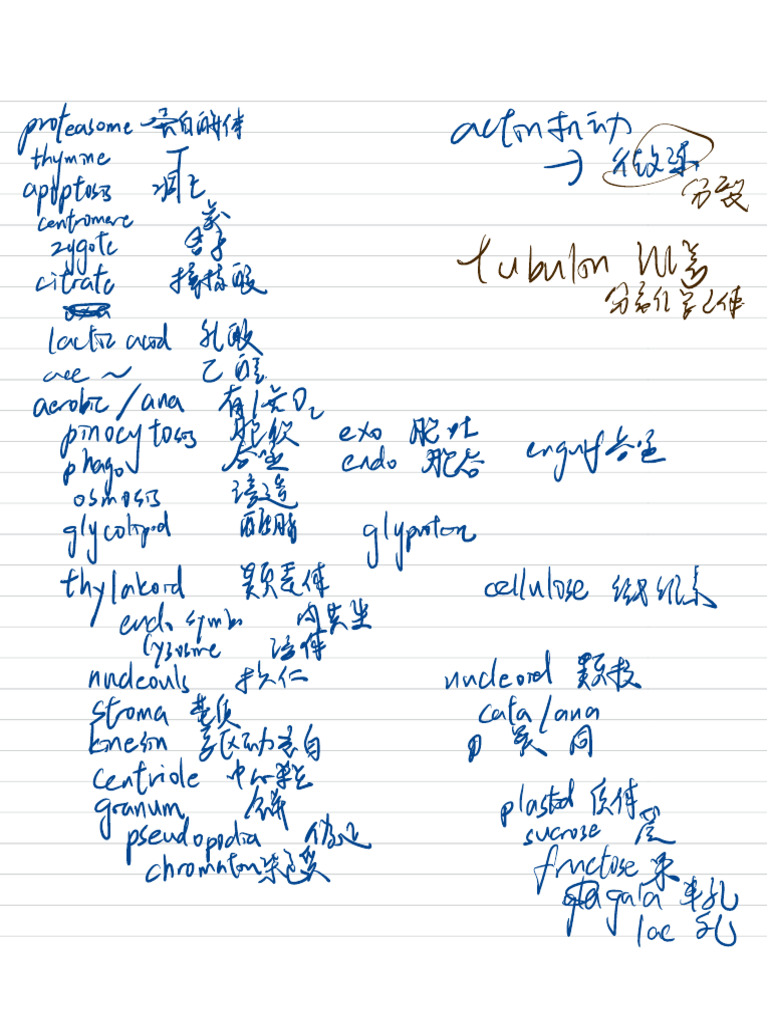 proteasome 蛋白酶体
thymine T
apoptosis 凋亡
centromere
zygote 合子
citrate 柠檬酸
lactic acid 乳酸
ace ~ 乙醛
aerobic / ana 有/无O2
pinocytosis 胞饮
phago 吞噬
osmosis 渗透
glycolipid 糖脂
thylakoid 类囊体
endo symbio 内共生
lysosome 溶体
nucleouls 核仁
stroma 基质
kinesin 驱动蛋白
centriole 中心粒
granum
pseudopodia 伪足
chromatin 染色质
actin 肌动
→ 微球
分裂
tubulin 川蛋
exo 胞吐
endo 胞吞
engulf 吞噬
glyprotein
cellulose 纤维素
nucleoid 类核
cata / ana
异 同
plastid 质体
sucrose 蔗
fructose 果
gala 半乳
lac 乳